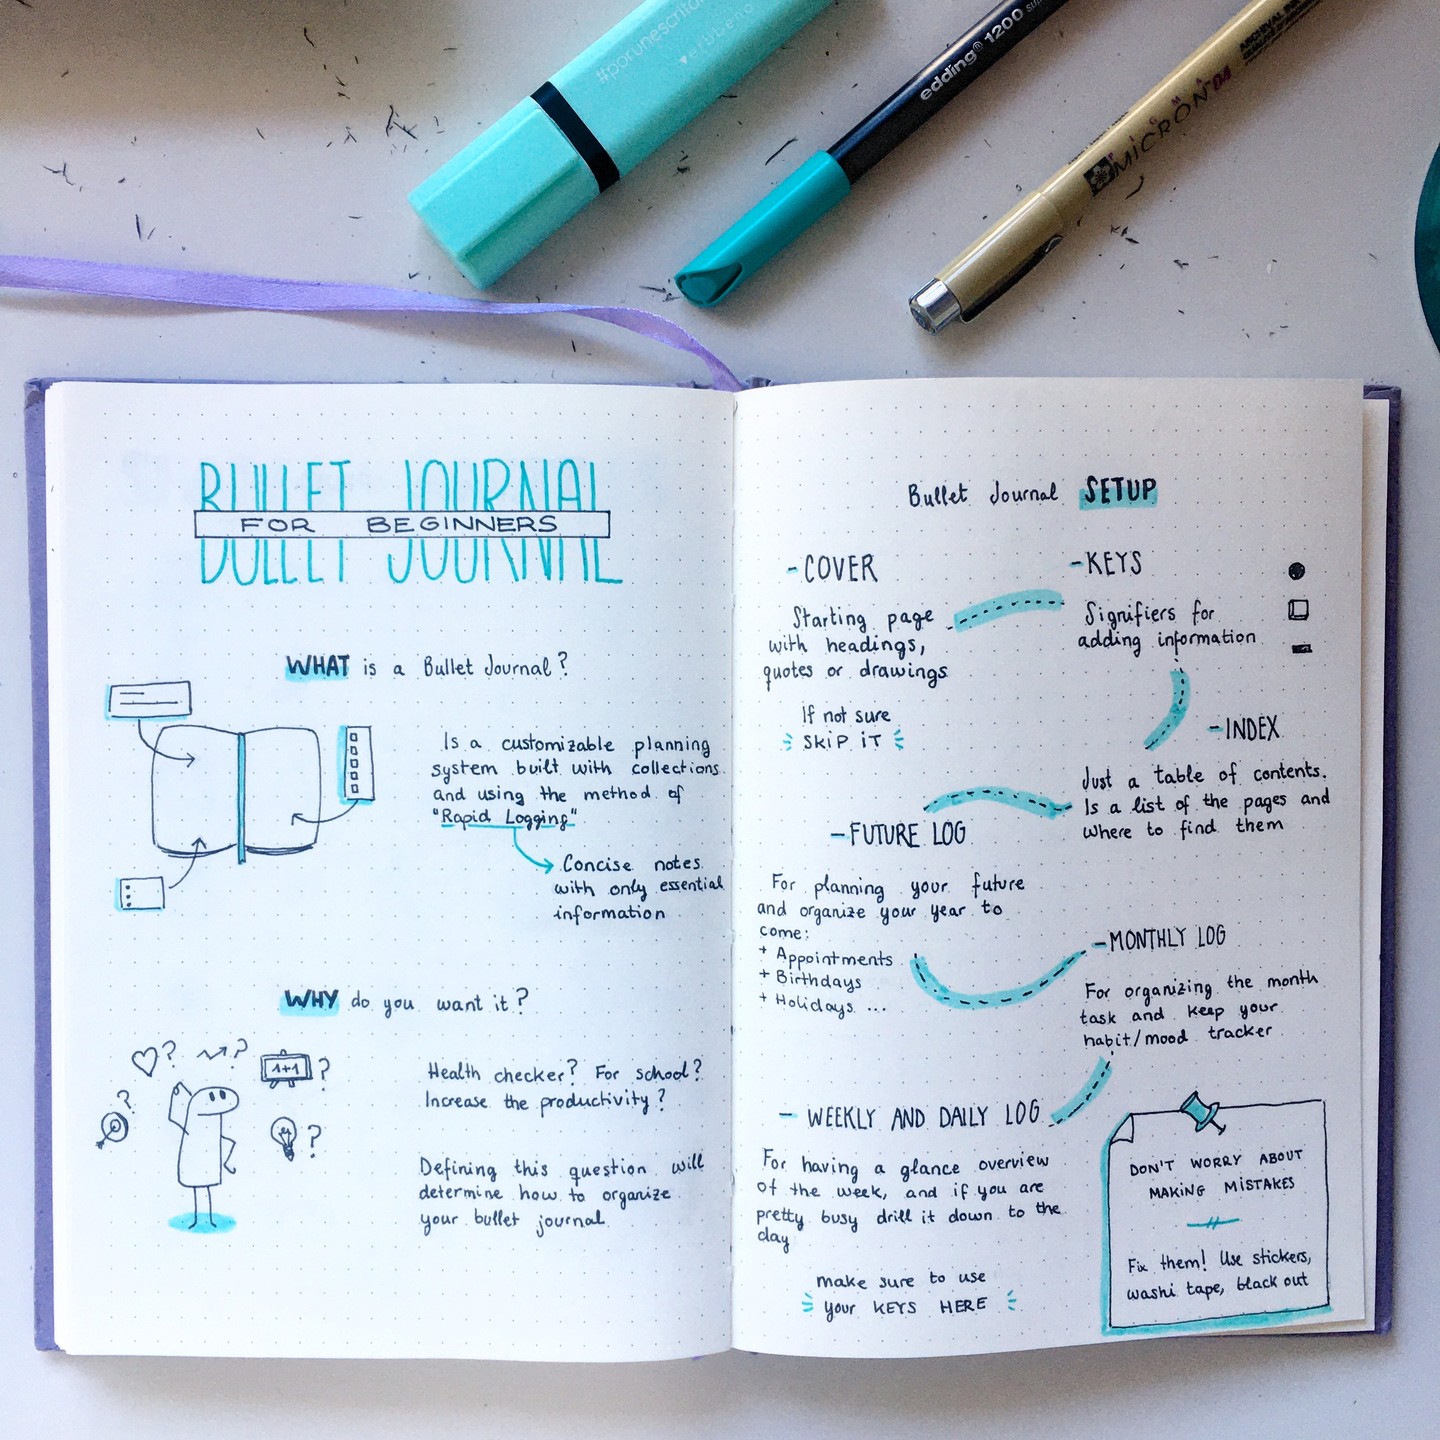 #porunescritor
♥erybeno
edding® 1200
PIGMA
MICRON 04
ARCHIVAL INK
BULLET JOURNAL
FOR BEGINNERS
WHAT is a Bullet Journal?
Is a customizable planning
system built with collections
and using the method of
"Rapid Logging"
Concise notes
with only essential
information
WHY do you want it?
? ? 1+1 ?
? ?
Health checker? For school?
Increase the productivity?
Defining this question will
determine how to organize
your bullet journal
Bullet Journal SETUP
-COVER
Starting page
with headings,
quotes or drawings
If not sure
SKIP IT
-KEYS
Signifiers for
adding information
-INDEX
Just a table of contents.
Is a list of the pages and
where to find them
-FUTURE LOG
For planning your future
and organize your year to
come:
+ Appointments
+ Birthdays
+ Holidays ...
-MONTHLY LOG
For organizing the month
task and keep your
habit/mood tracker
- WEEKLY AND DAILY LOG
For having a glance overview
of the week, and if you are
pretty busy drill it down to the
day
make sure to use
your KEYS HERE
DON'T WORRY ABOUT
MAKING MISTAKES
Fix them! Use stickers,
washi tape, black out